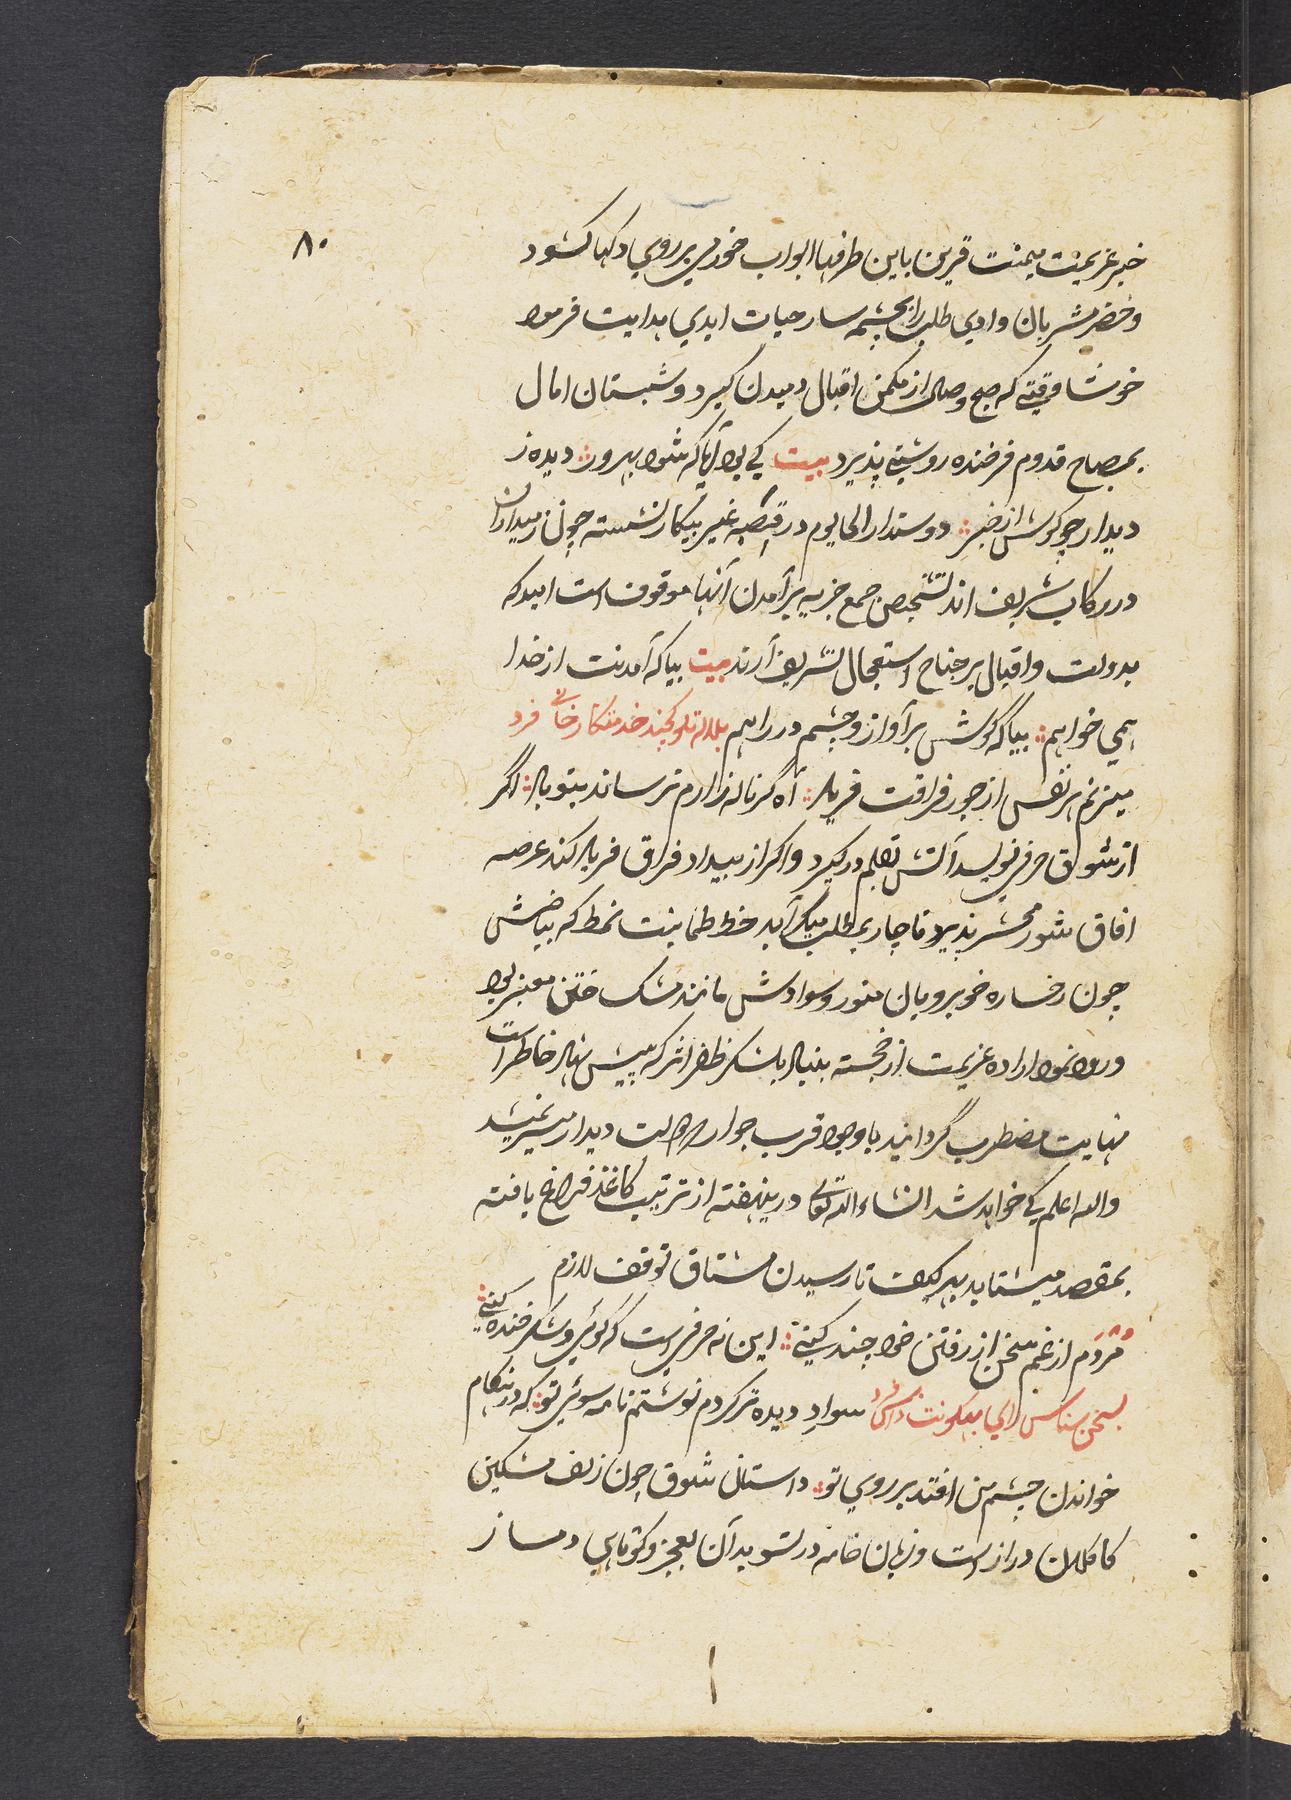 ۸۰
خبر عزیمت میمنت قرین باین طرفها ابواب خورمی بر روی دلها کشود
و خضر مشربان وادی طلب را بچشمه سار حیات ابدی هدایت فرمود
خوشا وقتی که صبح وصال از مکمن اقبال دمیدن کیرد و شبستان امال
بمصباح قدوم فرخنده روشنی پذیرد بیت کی بود آیا که شود بهره ور دیده ز
دیدار چو کوش از خبر دوستدار الحال یوم در قصبه غیر بیکار نشسته چون زمیداران
در رکاب شریف اند تشخیص جمع جزیه بر آمدن آنها موقوف است امید که
بدولت و اقبال بر جناح استعجال تشریف آرند بیت بیا که آمدنت از خدا
همی خواهم بیا که کوش بر آواز و چشم در راهم بلاله تلوکچند خدمتکار خانی فرد
میزنم هر نفس از جور فراقت فریاد آه کر ناله زارم نرساند بتو باد اگر
از شوق حرفی نویسد آتش بقلم در کیرد و اکر از بیداد فراق فریاد کند عرصه
افاق شور محشر پذیرد ناچار بمطلب میکراید خط طمانینت نمط که بیاضش
چون رخساره خوبرویان منور و سوادش مانند مشک ختن معنبر بود
ورود نمود اراده عزیمت از خجسته بنیاد بلشکر ظفر اثر که پیش نهاد خاطر است
نهایت مضطرب گردانید با وجود قرب جوار دولت دیدار میسر نمیشد
والله اعلم کی خواهد شد انشاء الله تعالی درین هفته از ترتیب کاغذ فراغ یافته
بمقصد میشتابد بهر کیف تا رسیدن مشتاق توقف لازم
مردم از غم سخن از رفتن خود چند کنی این نه حرفی است که گوئی و شکر خنده کنی
بسخن شناس رای سواد دیده تر کردم نوشتم نامه سوی تو که در هنکام
خواندن چشم من افتد بر روی تو داستان شوق چون زلف مشکین
کاکلان دراز است و زبان خامه در تسوید آن بعجز و کوتاهی دمساز